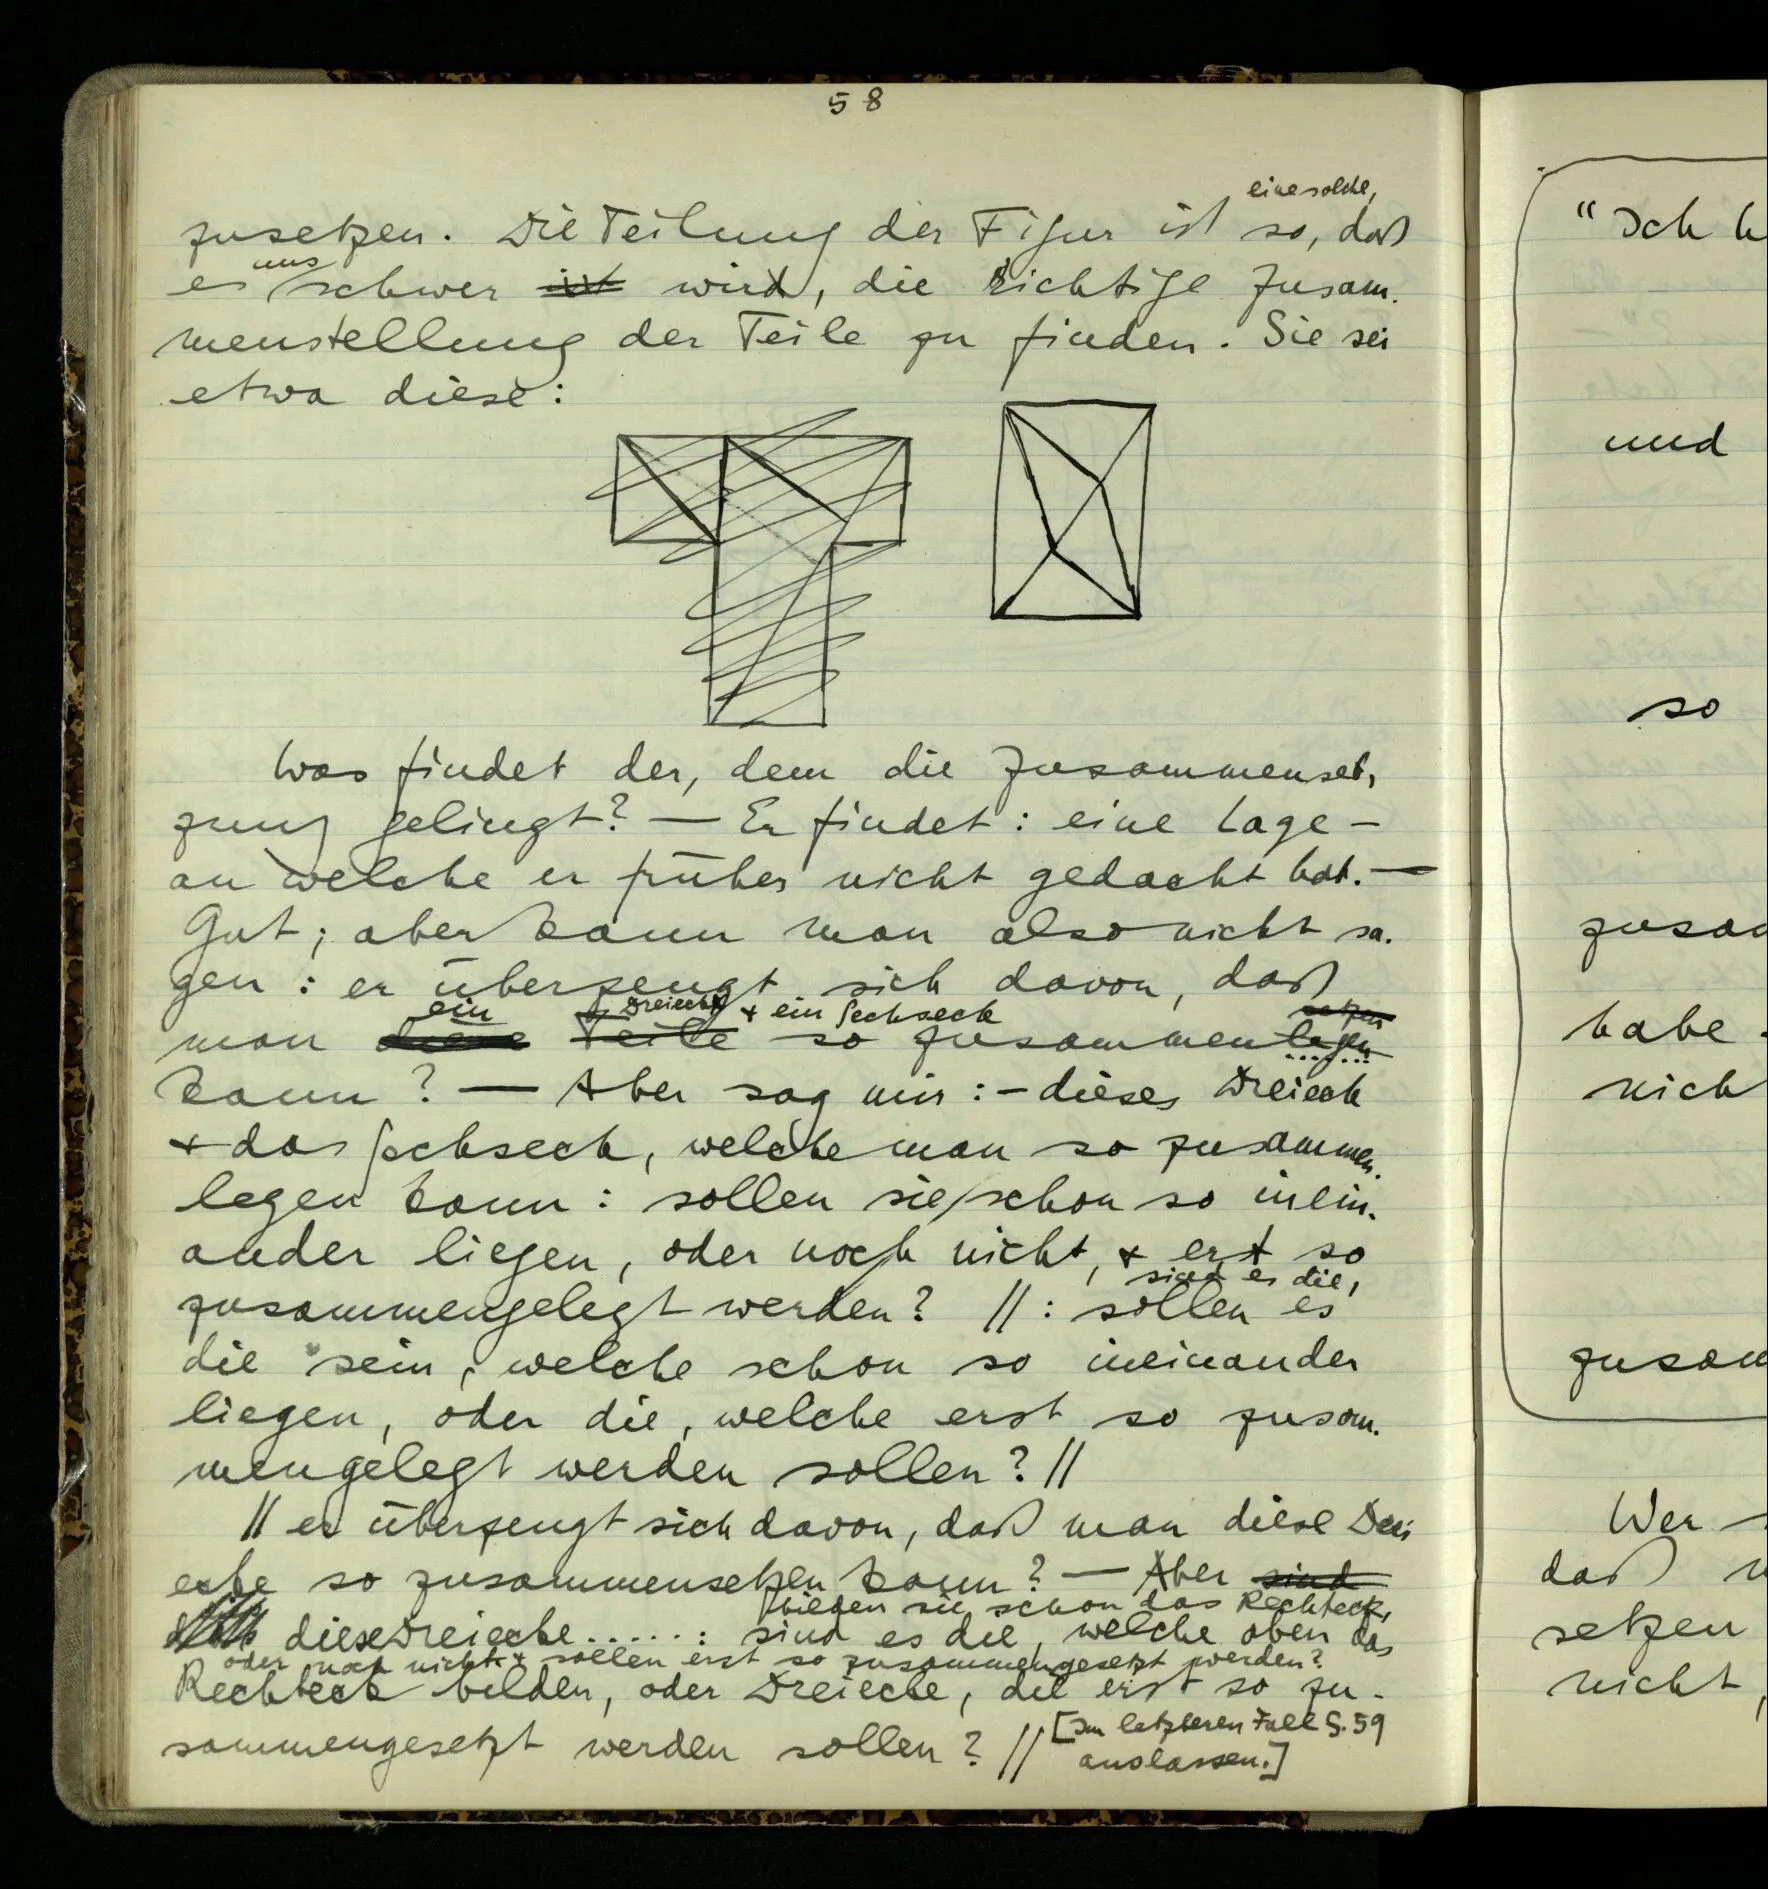 58
eine solche,
zusetzen. Die Teilung der Figur ist so, daß
uns
es schwer ist wird, die richtige Zusam-
menstellung der Teile zu finden. Sie sei
etwa diese:
Was findet der, dem die Zusammenset-
zung gelingt? — Er findet: eine Lage –
an welche er früher nicht gedacht hat. —
Gut; aber kann man also nicht sa-
gen: er überzeugt sich davon, daß
ein Dreieck + ein Sechseck setzen
man diese Teile so zusammenlegen
kann? — Aber sag mir: – dieses Dreieck
+ das Sechseck, welche man so zusammen-
legen kann: sollen sie schon so inein-
ander liegen, oder noch nicht, + erst so
sind es die,
zusammengelegt werden? //: sollen es
die sein, welche schon so ineinander
liegen, oder die, welche erst so zusam-
mengelegt werden sollen? //
// er überzeugt sich davon, daß man diese Drei
ecke so zusammensetzen kann? — Aber sind
bilden sie schon das Rechteck,
diese Dreiecke.....: sind es die, welche oben das
oder noch nicht + sollen erst so zusammengesetzt werden?
Rechteck bilden, oder Dreiecke, die erst so zu-
sammengesetzt werden sollen? // [Im letzteren Fall S. 59
auslassen.]
"Ich h
und
so
zusam
habe
nich
zusam
Wer
daß
setzen
nicht,